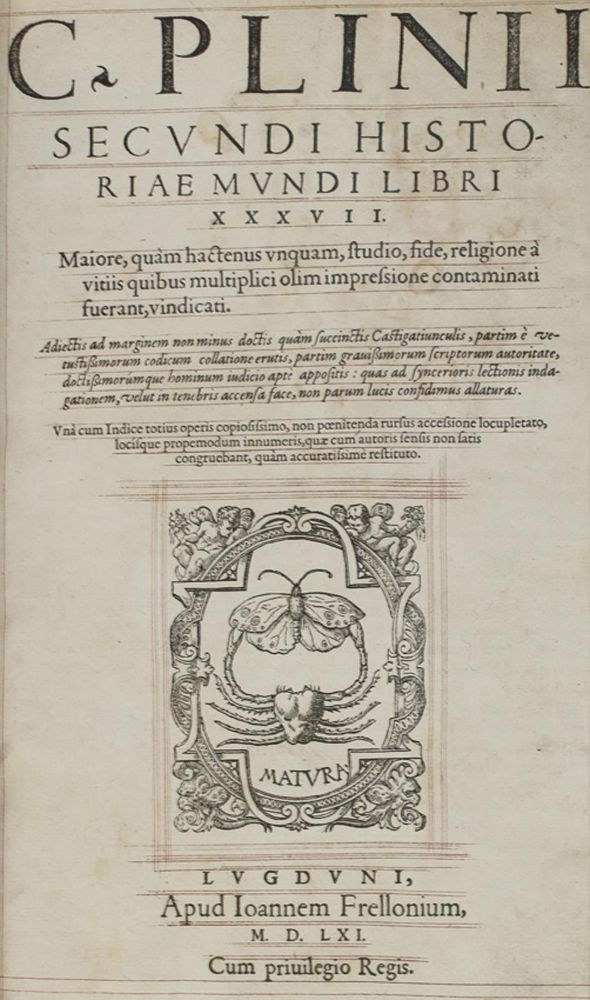 C. PLINII
SECVNDI HISTO-
RIAE MVNDI LIBRI
XXXVII.
Maiore, quàm hactenus vnquam, ſtudio, fide, religione à
vitiis quibus multiplici olim impreſsione contaminati
fuerant, vindicati.
Adiectis ad marginem non minus doctis quàm ſuccinctis Caſtigatiunculis, partim è ve-
tuſtißimorum codicum collatione erutis, partim grauißimorum ſcriptorum autoritate,
doctißimorumque hominum iudicio aptè appoſitis : quas ad ſyncerioris lectionis inda-
gationem, velut in tenebris accenſa face, non parum lucis confidimus allaturas.
Vnà cum Indice totius operis copioſiſsimo, non pœnitenda rurſus acceſsione locupletato,
lociſque propemodum innumeris, quæ cum autoris ſenſis non ſatis
congruebant, quàm accuratiſsimè reſtituto.
MATVRA
LVGDVNI,
Apud Ioannem Frellonium,
M. D. LXI.
Cum priuilegio Regis.